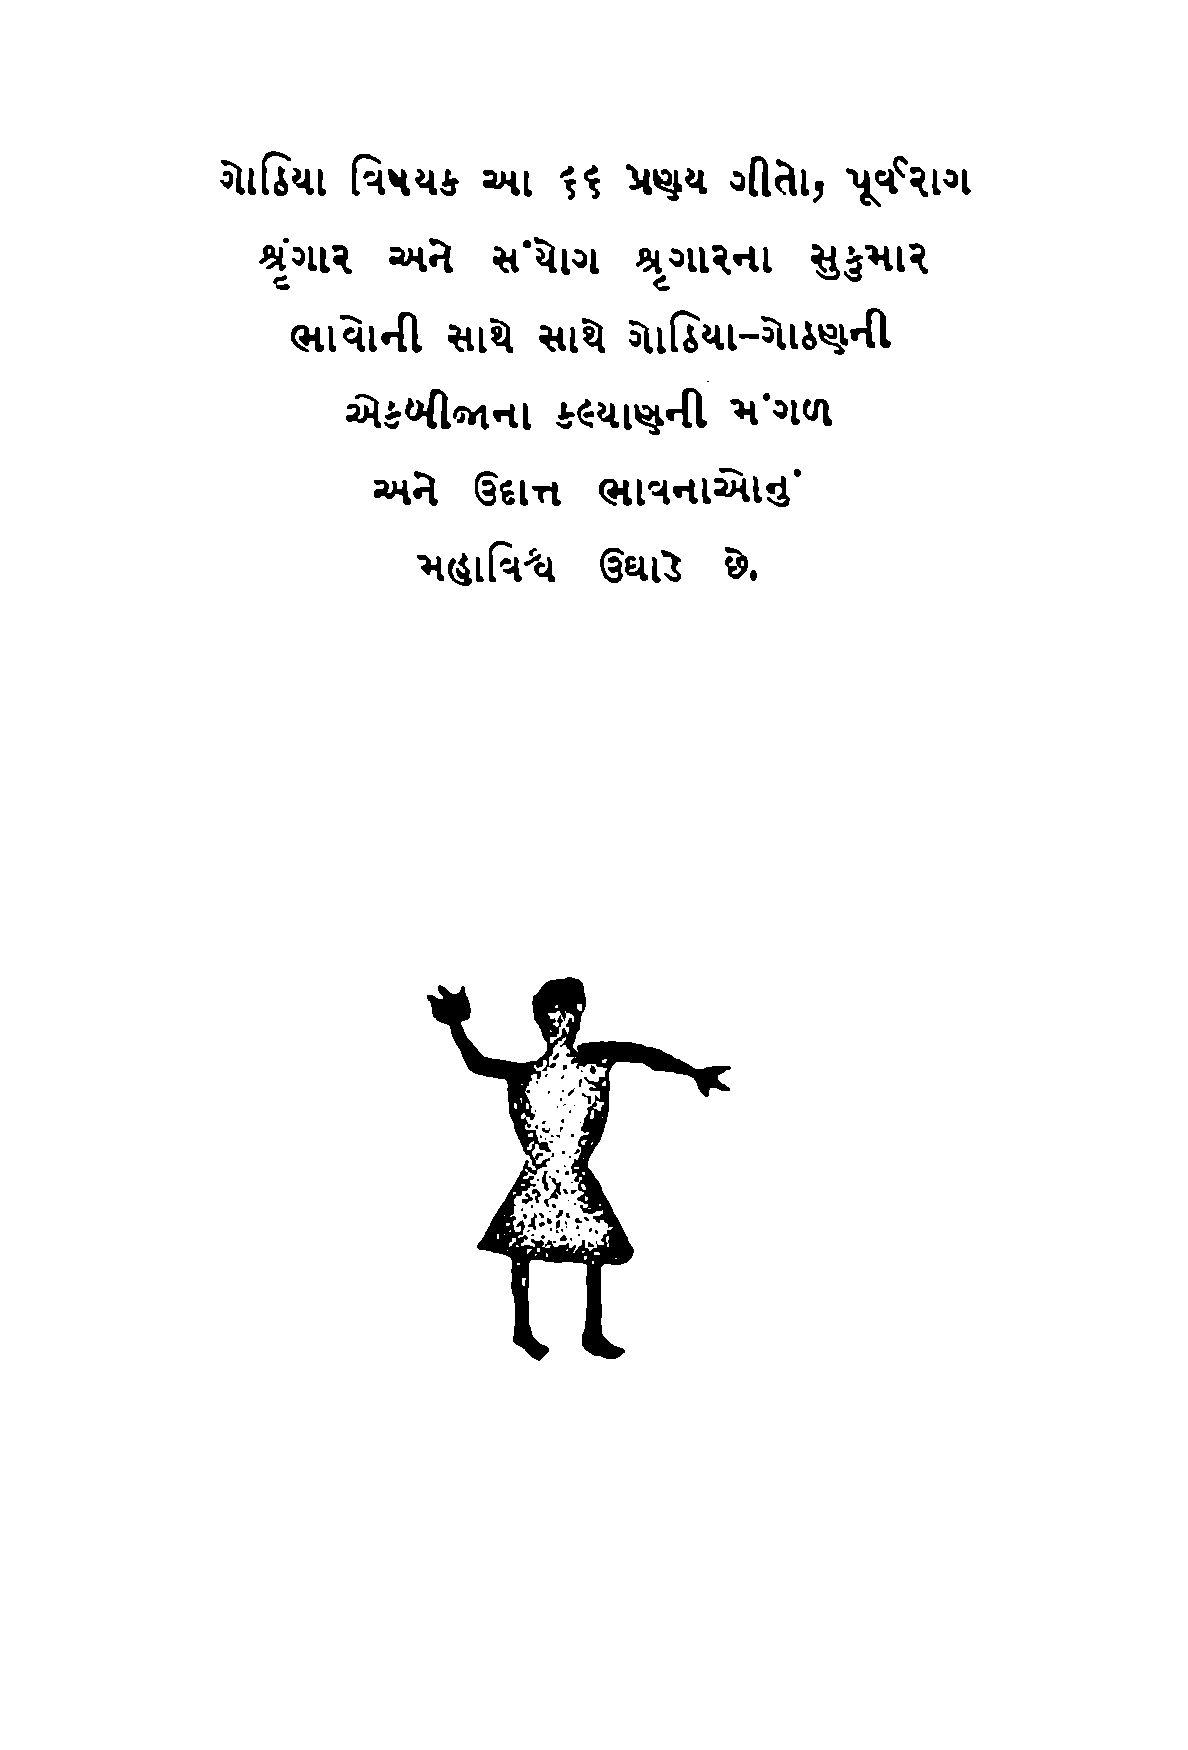 ગોઠિયા વિષયક આ ૬૬ પ્રણય ગીતો, પૂર્વરાગ
શ્રૃંગાર અને સંયોગ શ્રૃગારના સુકુમાર
ભાવોની સાથે સાથે ગોઠિયા-ગોઠણની
એકબીજાના કલ્યાણની મંગળ
અને ઉદાત્ત ભાવનાઓનું
મહાવિશ્વ ઉઘાડે છે.